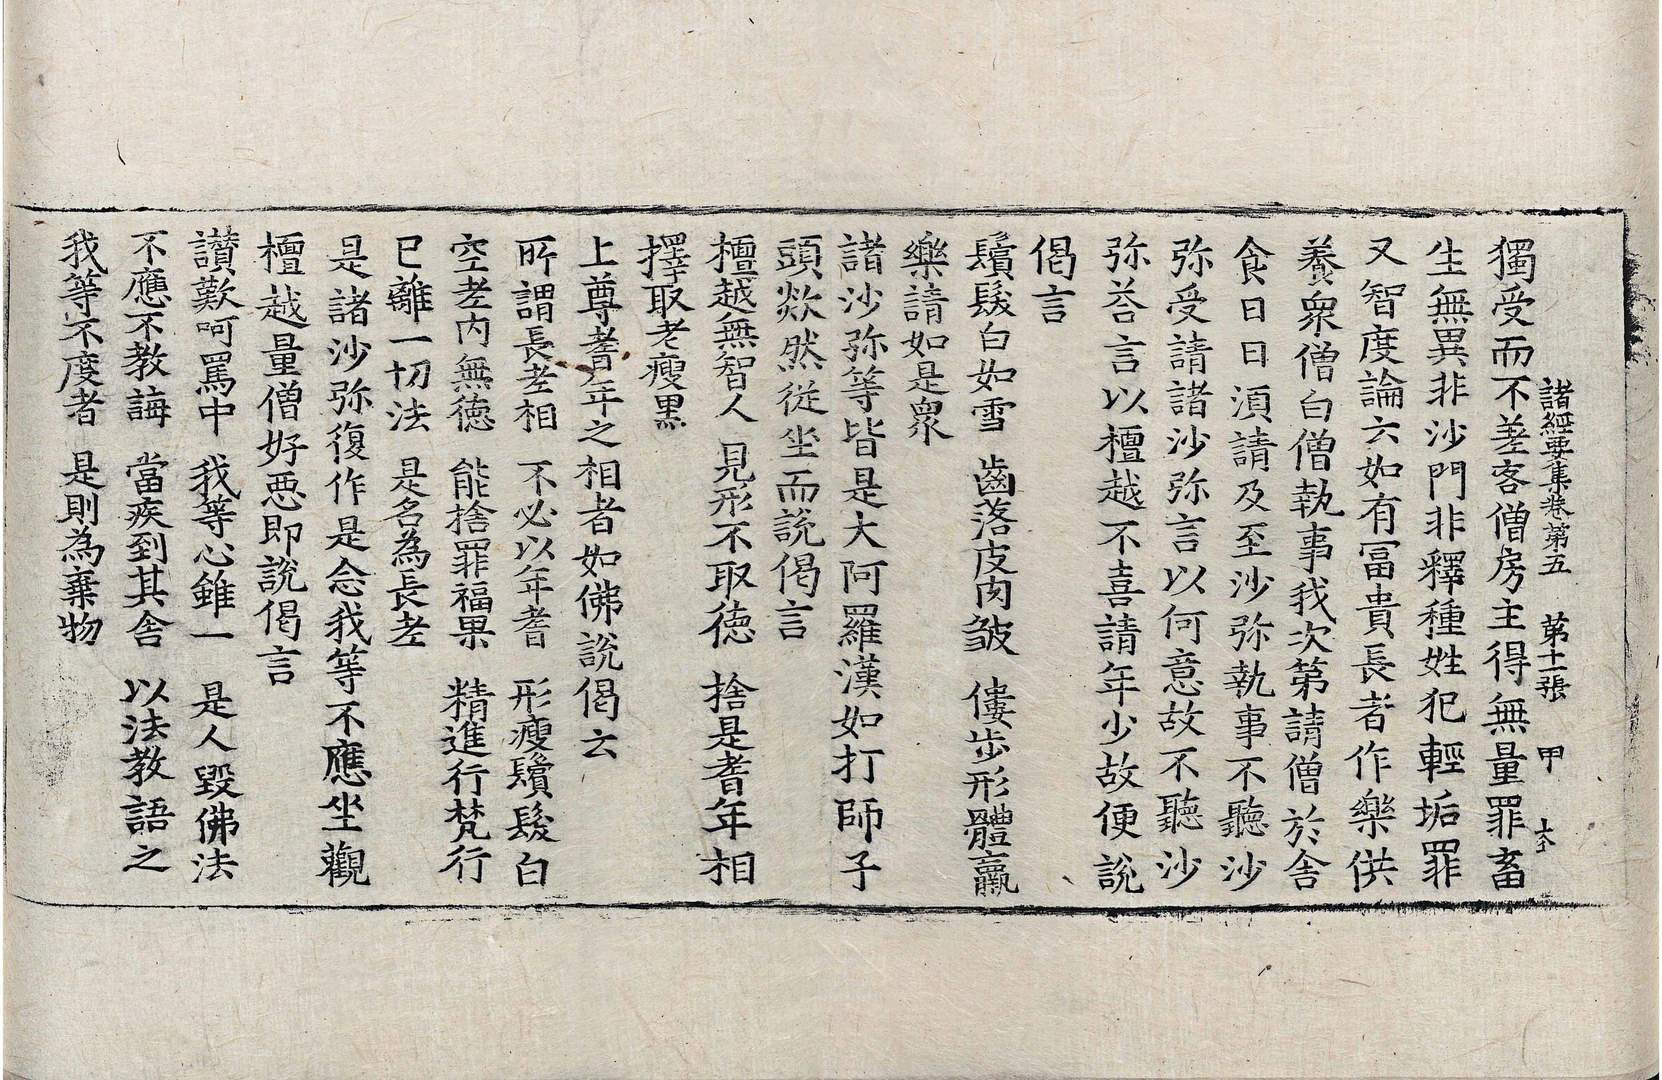 諸經要集卷第五　第十一張　甲
獨受而不差客僧房主得無量罪畜
生無異非沙門非釋種姓犯輕垢罪
又智度論云如有冨貴長者作樂供
養衆僧白僧執事我次第請僧於舍
食日日湏請及至沙弥執事不聽沙
弥受請諸沙弥言以何意故不聽沙
弥荅言以檀越不喜請年少故便說
偈言
鬚髮白如雪　齒落皮肉皺　僂步形體羸
樂請如是衆
諸沙弥等皆是大阿羅漢如打師子
頭欻然從坐而說偈言
檀越無智人　見形不取德　捨是耆年相
擇取老瘦黑
上尊耆年之相者如佛說偈云
所謂長老相　不必以年耆　形瘦鬚髮白
空老內無德　能捨罪福果　精進行梵行
已離一切法　是名為長老
是諸沙弥復作是念我等不應坐觀
檀越量僧好惡即說偈言
讃歎呵罵中　我等心雖一　是人毀佛法
不應不教誨　當疾到其舍　以法教語之
我等不度者　是則為棄物